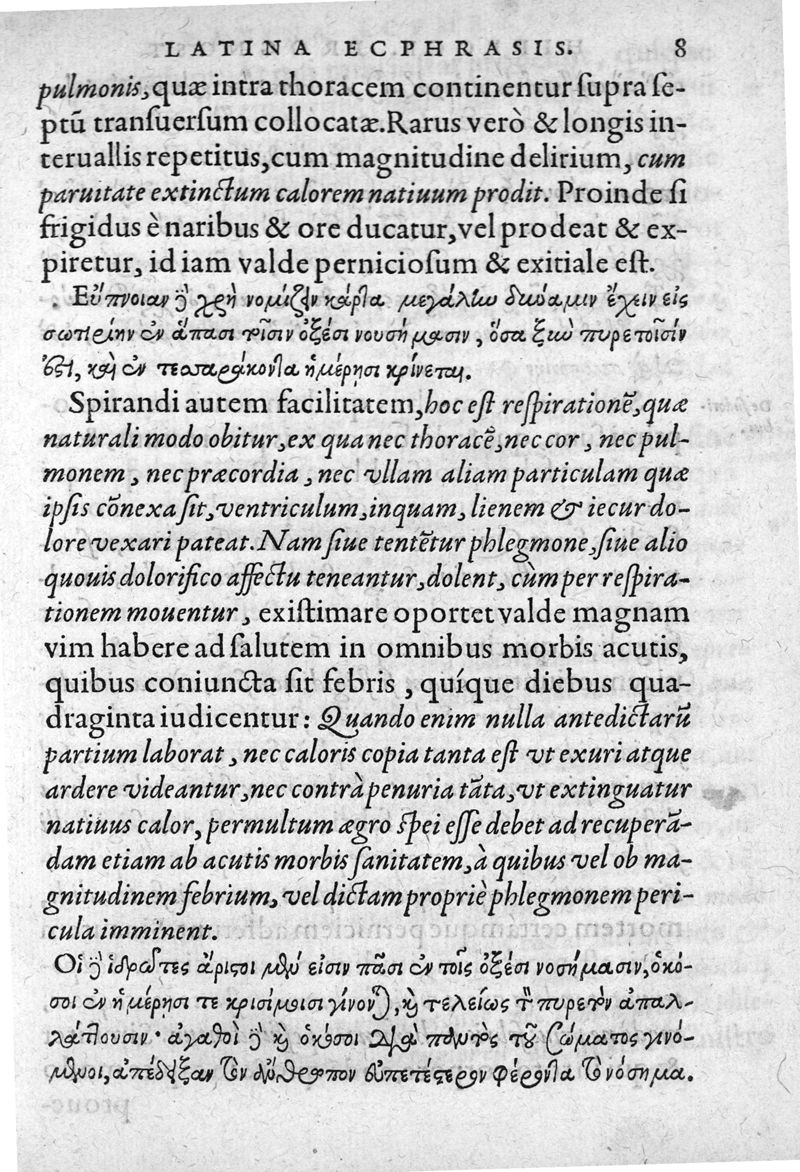 LATINA ECPHRASIS. 8
pulmonis, quæ intra thoracem continentur ſupra ſe-
ptū tranſuerſum collocatæ. Rarus verò & longis in-
teruallis repetitus, cum magnitudine delirium, cum
paruitate extinctum calorem natiuum prodit. Proinde ſi
frigidus è naribus & ore ducatur, vel prodeat & ex-
piretur, id iam valde pernicioſum & exitiale eſt.
Εὔπνοιαν δὲ χρὴ νομίζειν κάρτα μεγάλην δύναμιν ἔχειν εἰς
σωτηρίην ἐν ἅπασι τοῖσιν ὀξέσι νουσήμασιν, ὅσα ξὺν πυρετοῖσίν
ἐστι, καὶ ἐν τεσσαράκοντα ἡμέρῃσι κρίνεται.
Spirandi autem facilitatem, hoc eſt reſpirationē, quæ
naturali modo obitur, ex qua nec thoracē, nec cor, nec pul-
monem, nec præcordia, nec vllam aliam particulam quæ
ipſis cōnexa ſit, ventriculum, inquam, lienem & iecur do-
lore vexari pateat. Nam ſiue tentētur phlegmone, ſiue alio
quouis dolorifico affectu teneantur, dolent, cùm per reſpira-
tionem mouentur, exiſtimare oportet valde magnam
vim habere ad ſalutem in omnibus morbis acutis,
quibus coniuncta ſit febris, quíque diebus qua-
draginta iudicentur: Quando enim nulla antedictarū
partium laborat, nec caloris copia tanta eſt vt exuri atque
ardere videantur, nec contrà penuria tāta, vt extinguatur
natiuus calor, permultum ægro ſpei eſſe debet ad recuperā-
dam etiam ab acutis morbis ſanitatem, à quibus vel ob ma-
gnitudinem febrium, vel dictam propriè phlegmonem peri-
cula imminent.
Οἱ δὲ ἱδρῶτες ἄριστοι μὲν εἰσιν πᾶσι ἐν τοῖς ὀξέσι νοσήμασιν, ὁκό-
σοι ἐν ἡμέρῃσί τε κρισίμοισι γίνονται, καὶ τελείως τὸν πυρετὸν ἀπαλ-
λάττουσιν· ἀγαθοὶ δὲ καὶ ὁκόσοι διὰ παντὸς τοῦ σώματος γινό-
μενοι, ἀπέδειξαν τὸν ἄνθρωπον εὐπετέστερον φέροντα τὸ νόσημα.